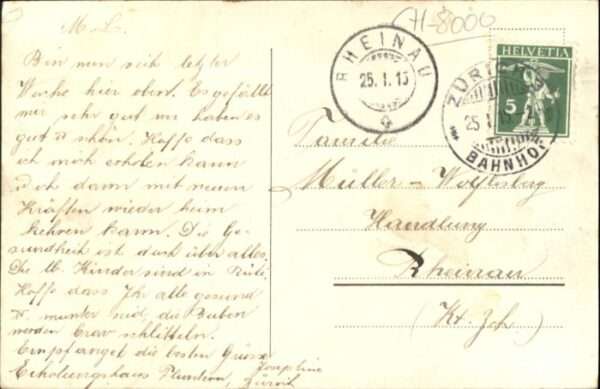 H-8000
M. L.
Bin nun seit letzter
Woche hier oben. Es gefällt
mir sehr gut wir haben es
gut & schön. Hoffe dass
ich mich erholen kann
& ich dann mit neuen
Kräften wieder heim
kehren kann. Die Ge-
sundheit ist doch über alles.
Die lb. Kinder sind in Rüti.
Hoffe dass Ihr alle gesund
& munter seid, die Buben
werden brav schlitteln.
Empfanget die besten Grüsse
Josephine
Erholungshaus Fluntern, Zürich
RHEINAU
25. I. 15
HELVETIA
5
ZÜRICH
25 I 15
BAHNHOF
Familie
Müller-
Handlung
Rheinau
(Kt. Zch)